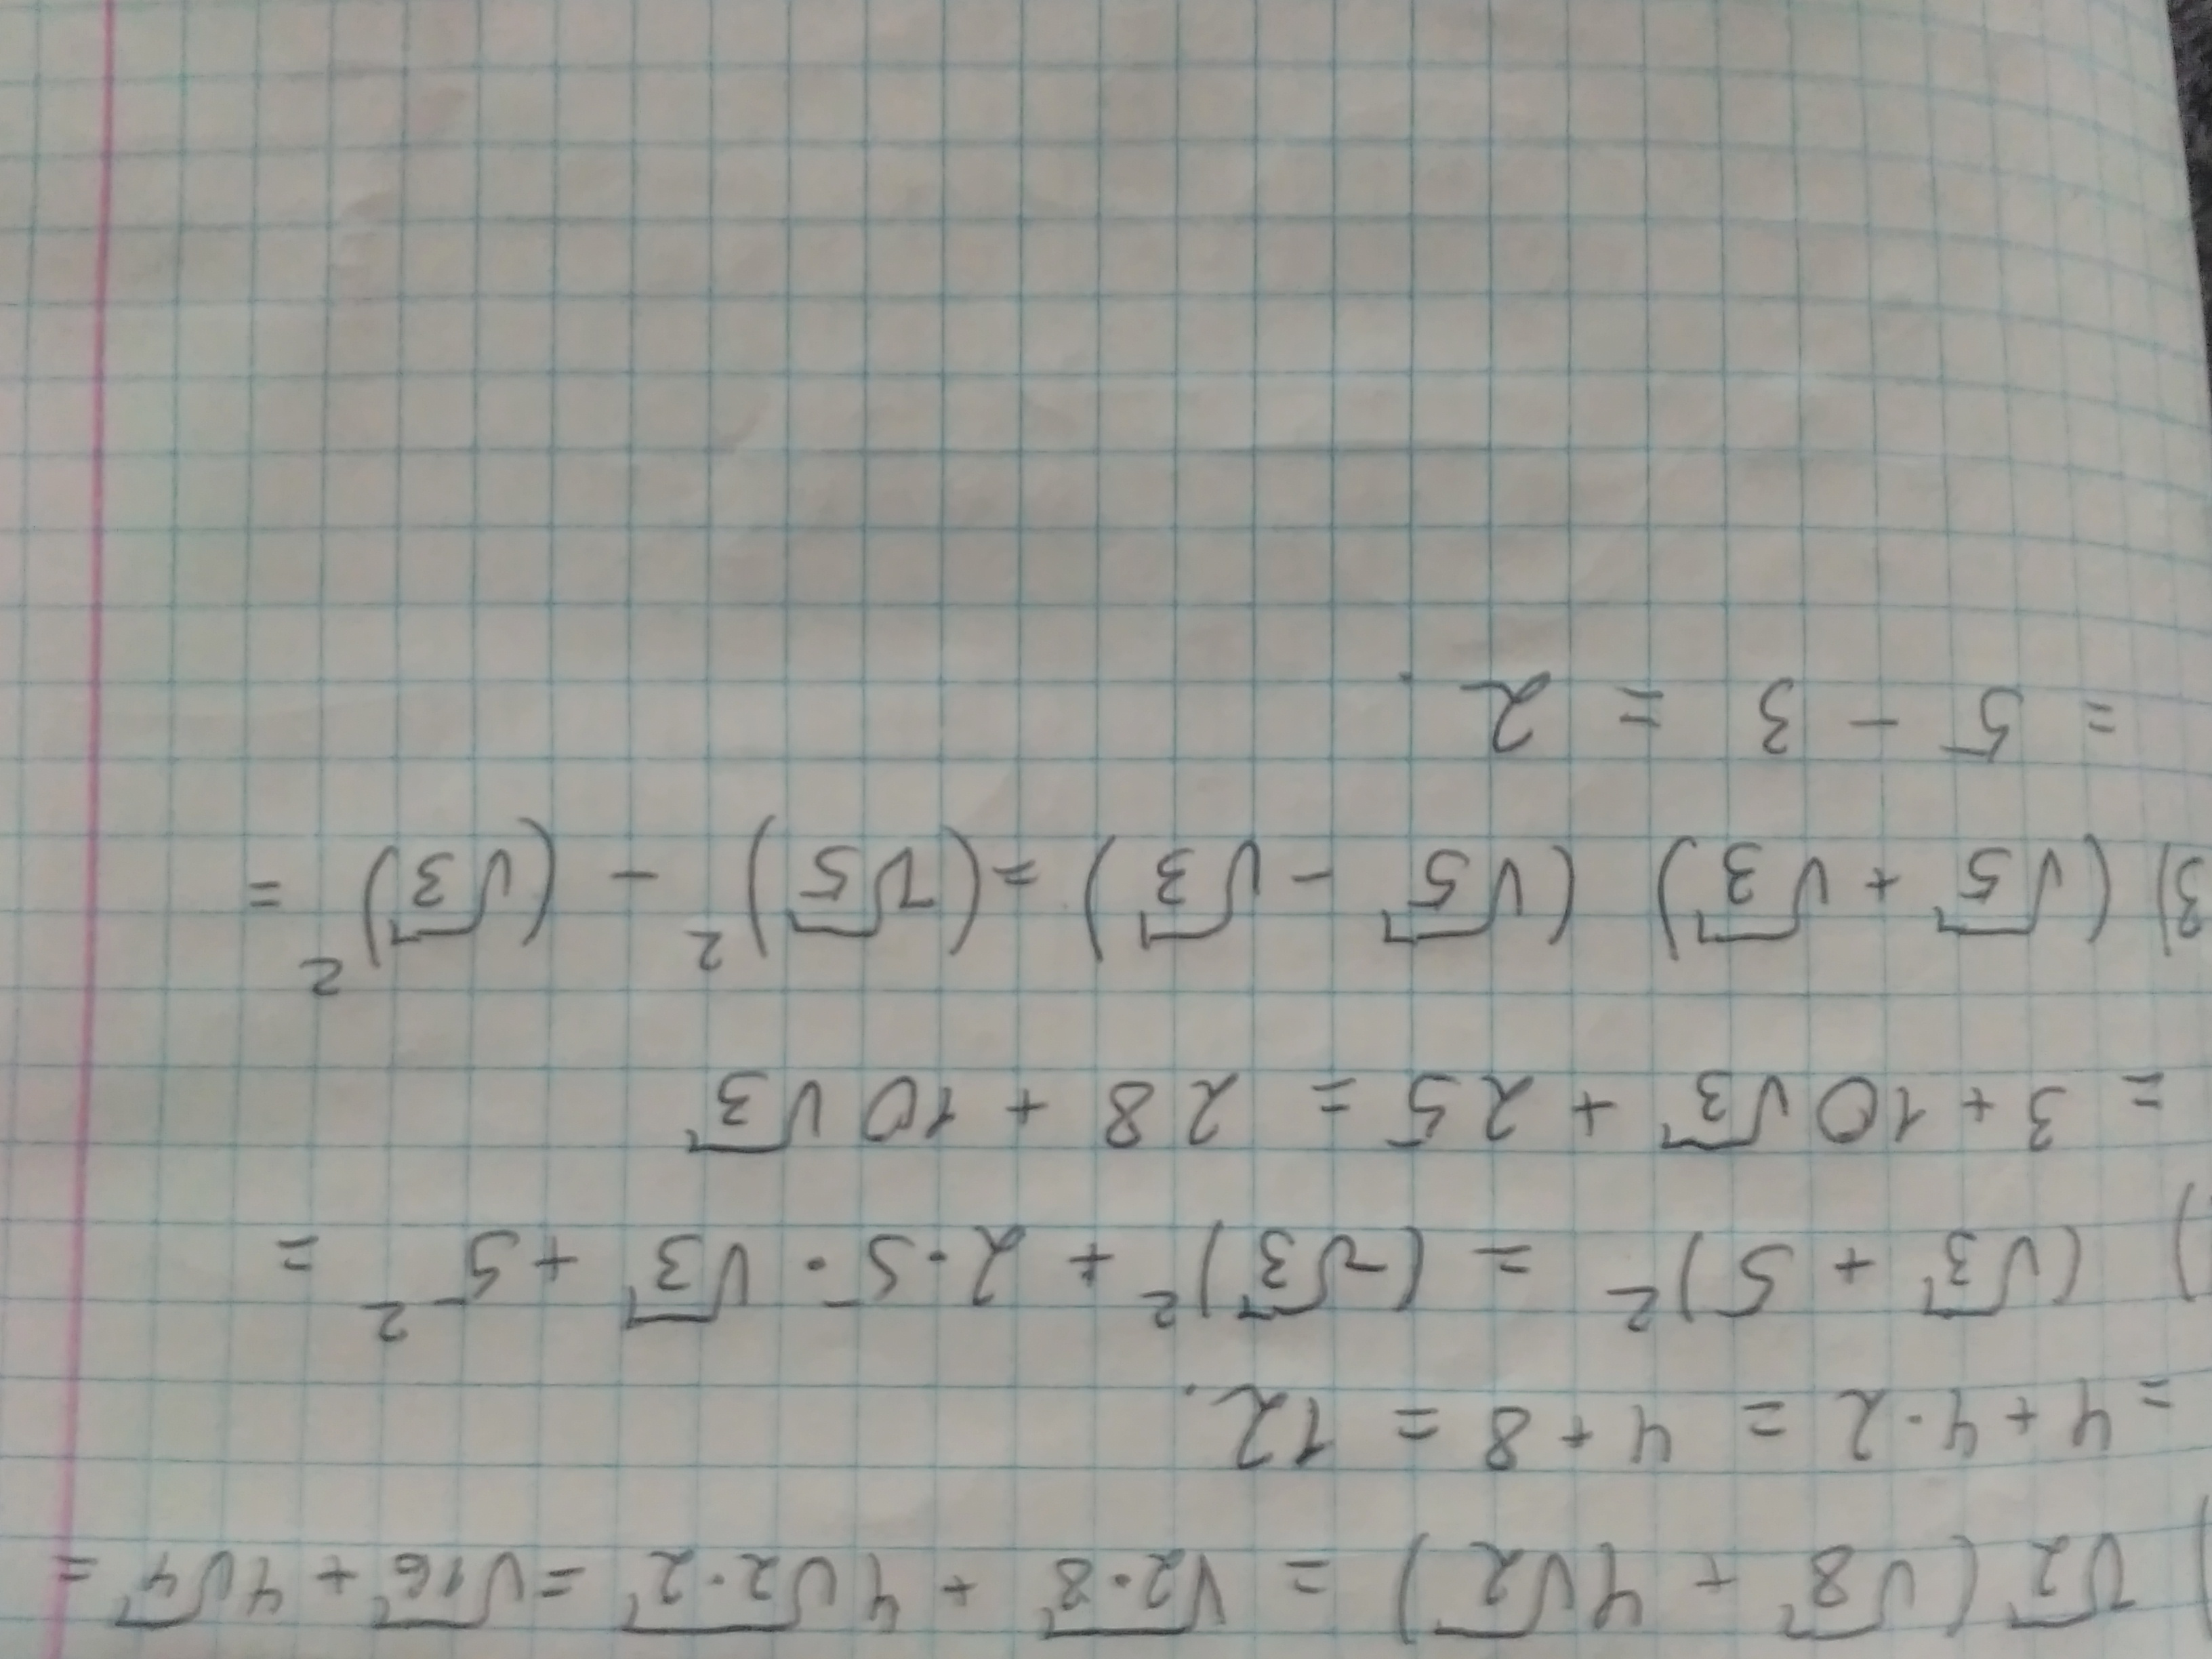 ) √2 (√8 + 4√2) = √2·8 + 4√2·2 = √16 + 4√4 =
= 4 + 4·2 = 4 + 8 = 12.
) (√3 + 5)² = (√3)² + 2·5·√3 + 5² =
= 3 + 10√3 + 25 = 28 + 10√3
3) (√5 + √3) (√5 - √3) = (√5)² - (√3)² =
= 5 - 3 = 2.